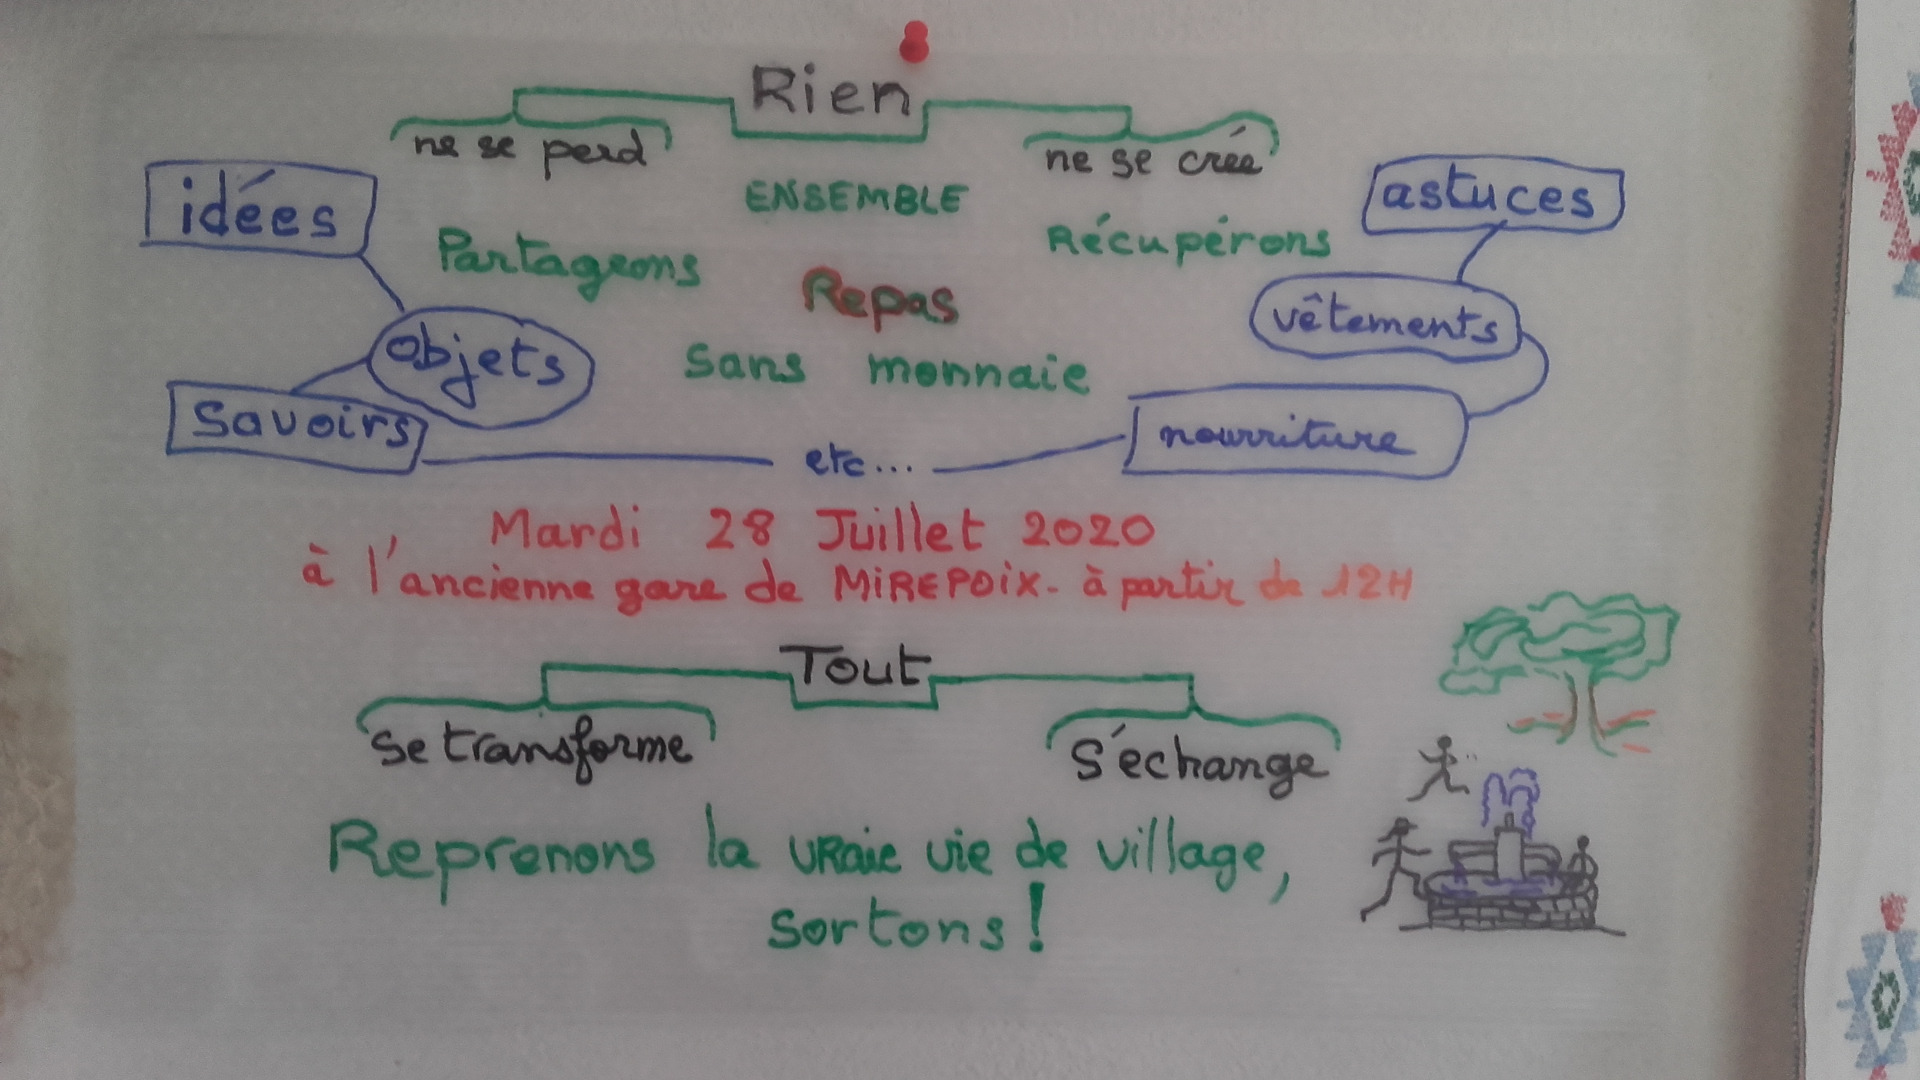 Rien
ne se perd
ne se crée
idées
ENSEMBLE
astuces
Partageons
Récupérons
Repas
vêtements
objets
Sans monnaie
Savoirs
nourriture
etc...
Mardi 28 Juillet 2020
à l'ancienne gare de MiREPOix - à partir de 12H
Tout
se transforme
s'échange
Reprenons la vraie vie de village,
sortons !